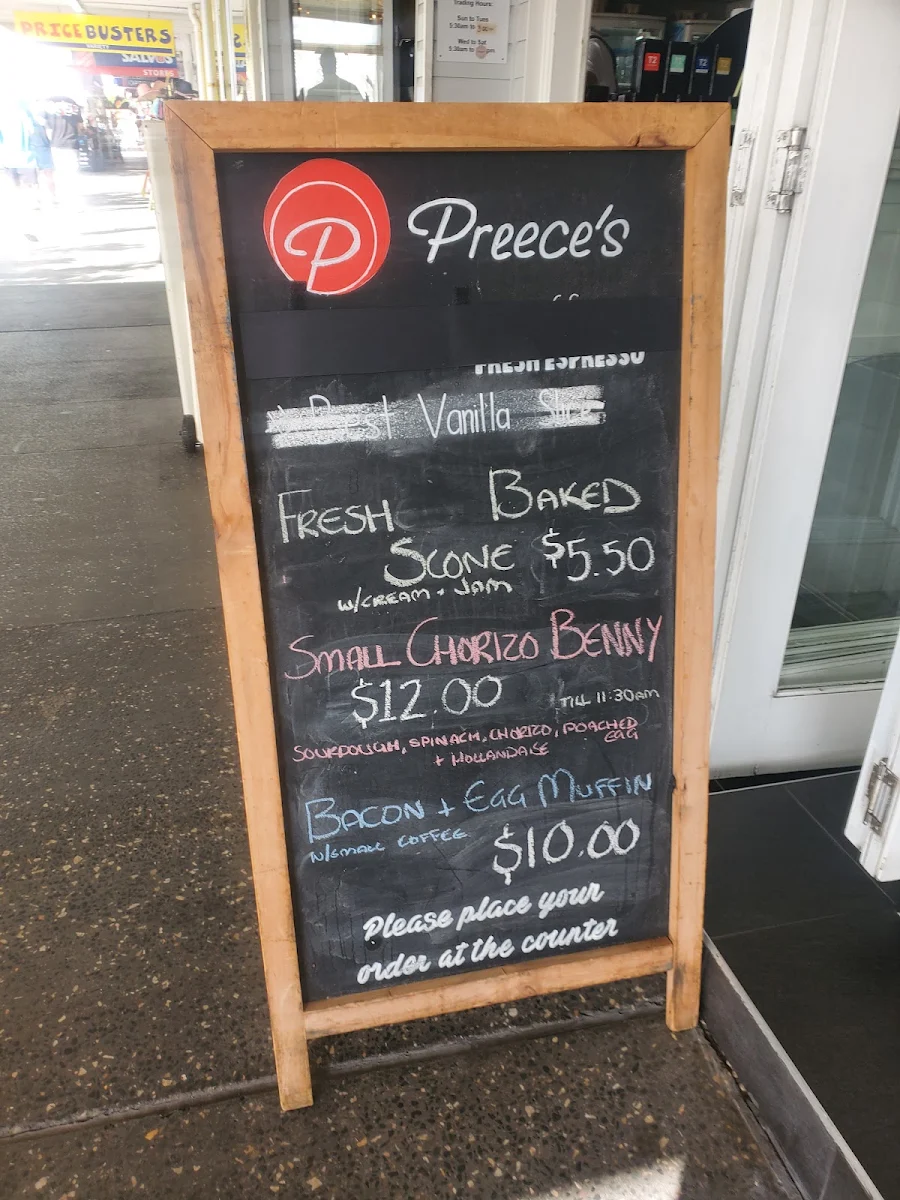 PRICEBUSTERS
VARIETY
SALVOS
STORES
Trading Hours:
Sun to Tues
5:30am to
Wed to Sat
5:30am to
T2
T2
P
Preece's
FRESH ESPRESSO
Best Vanilla Slice
FRESH BAKED
SCONE $5.50
W/CREAM + JAM
SMALL CHORIZO BENNY
$12.00 TILL 11:30AM
SOURDOUGH, SPINACH, CHORIZO, POACHED
EGG
+ HOLLANDAISE
BACON + EGG MUFFIN
W/SMALL COFFEE $10.00
Please place your
order at the counter